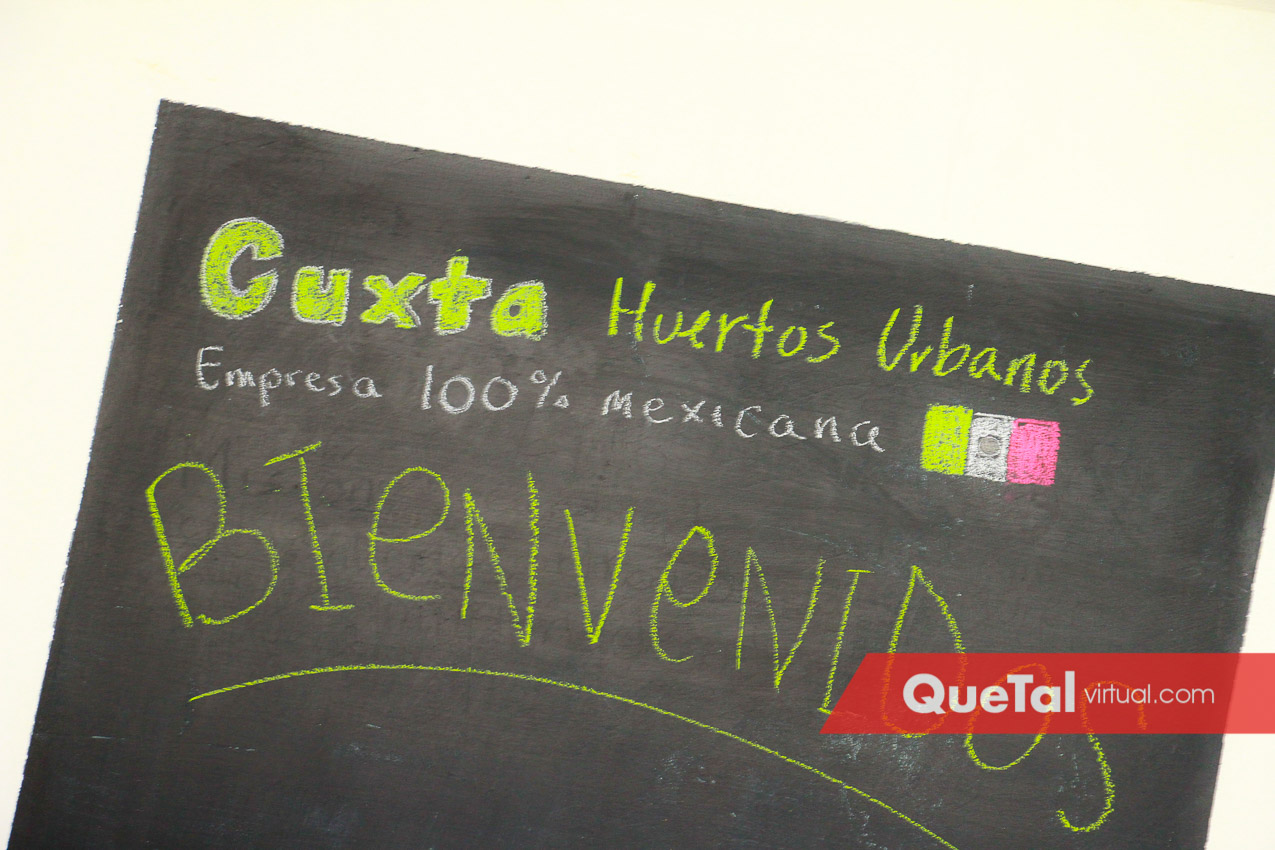 Cuxta Huertos Urbanos
Empresa 100% mexicana
BIeNVeNIDos
QueTal virtual.com